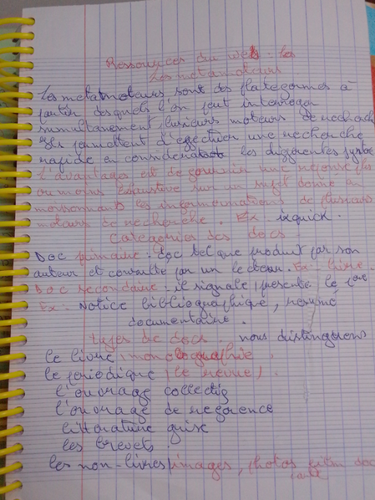 Ressources du web : les
les métamoteurs
Les métamoteurs sont des plateformes à
partir desquels l'on peut interroger
simultanément plusieurs moteurs de recherche
Ils permettent d'exécuter une recherche
rapide en considérant les différentes
L'avantage est de garantir une réponse
au moins exhaustive sur un sujet donné en
les informations de plusieurs
moteurs de recherche. Ex : ixquick.
Catégories des docs
Doc primaire : doc tel que produit par son
auteur et consulté par un lecteur. Ex : livre
Doc secondaire : il signale, présente le
Ex : Notice bibliographique, résumé
documentaire.
Types de docs. nous distinguons
le livre / monographie.
le périodique (la revue).
l'ouvrage collectif
l'ouvrage de référence
littérature grise
les brevets
les non-livres / images, photos, film, doc